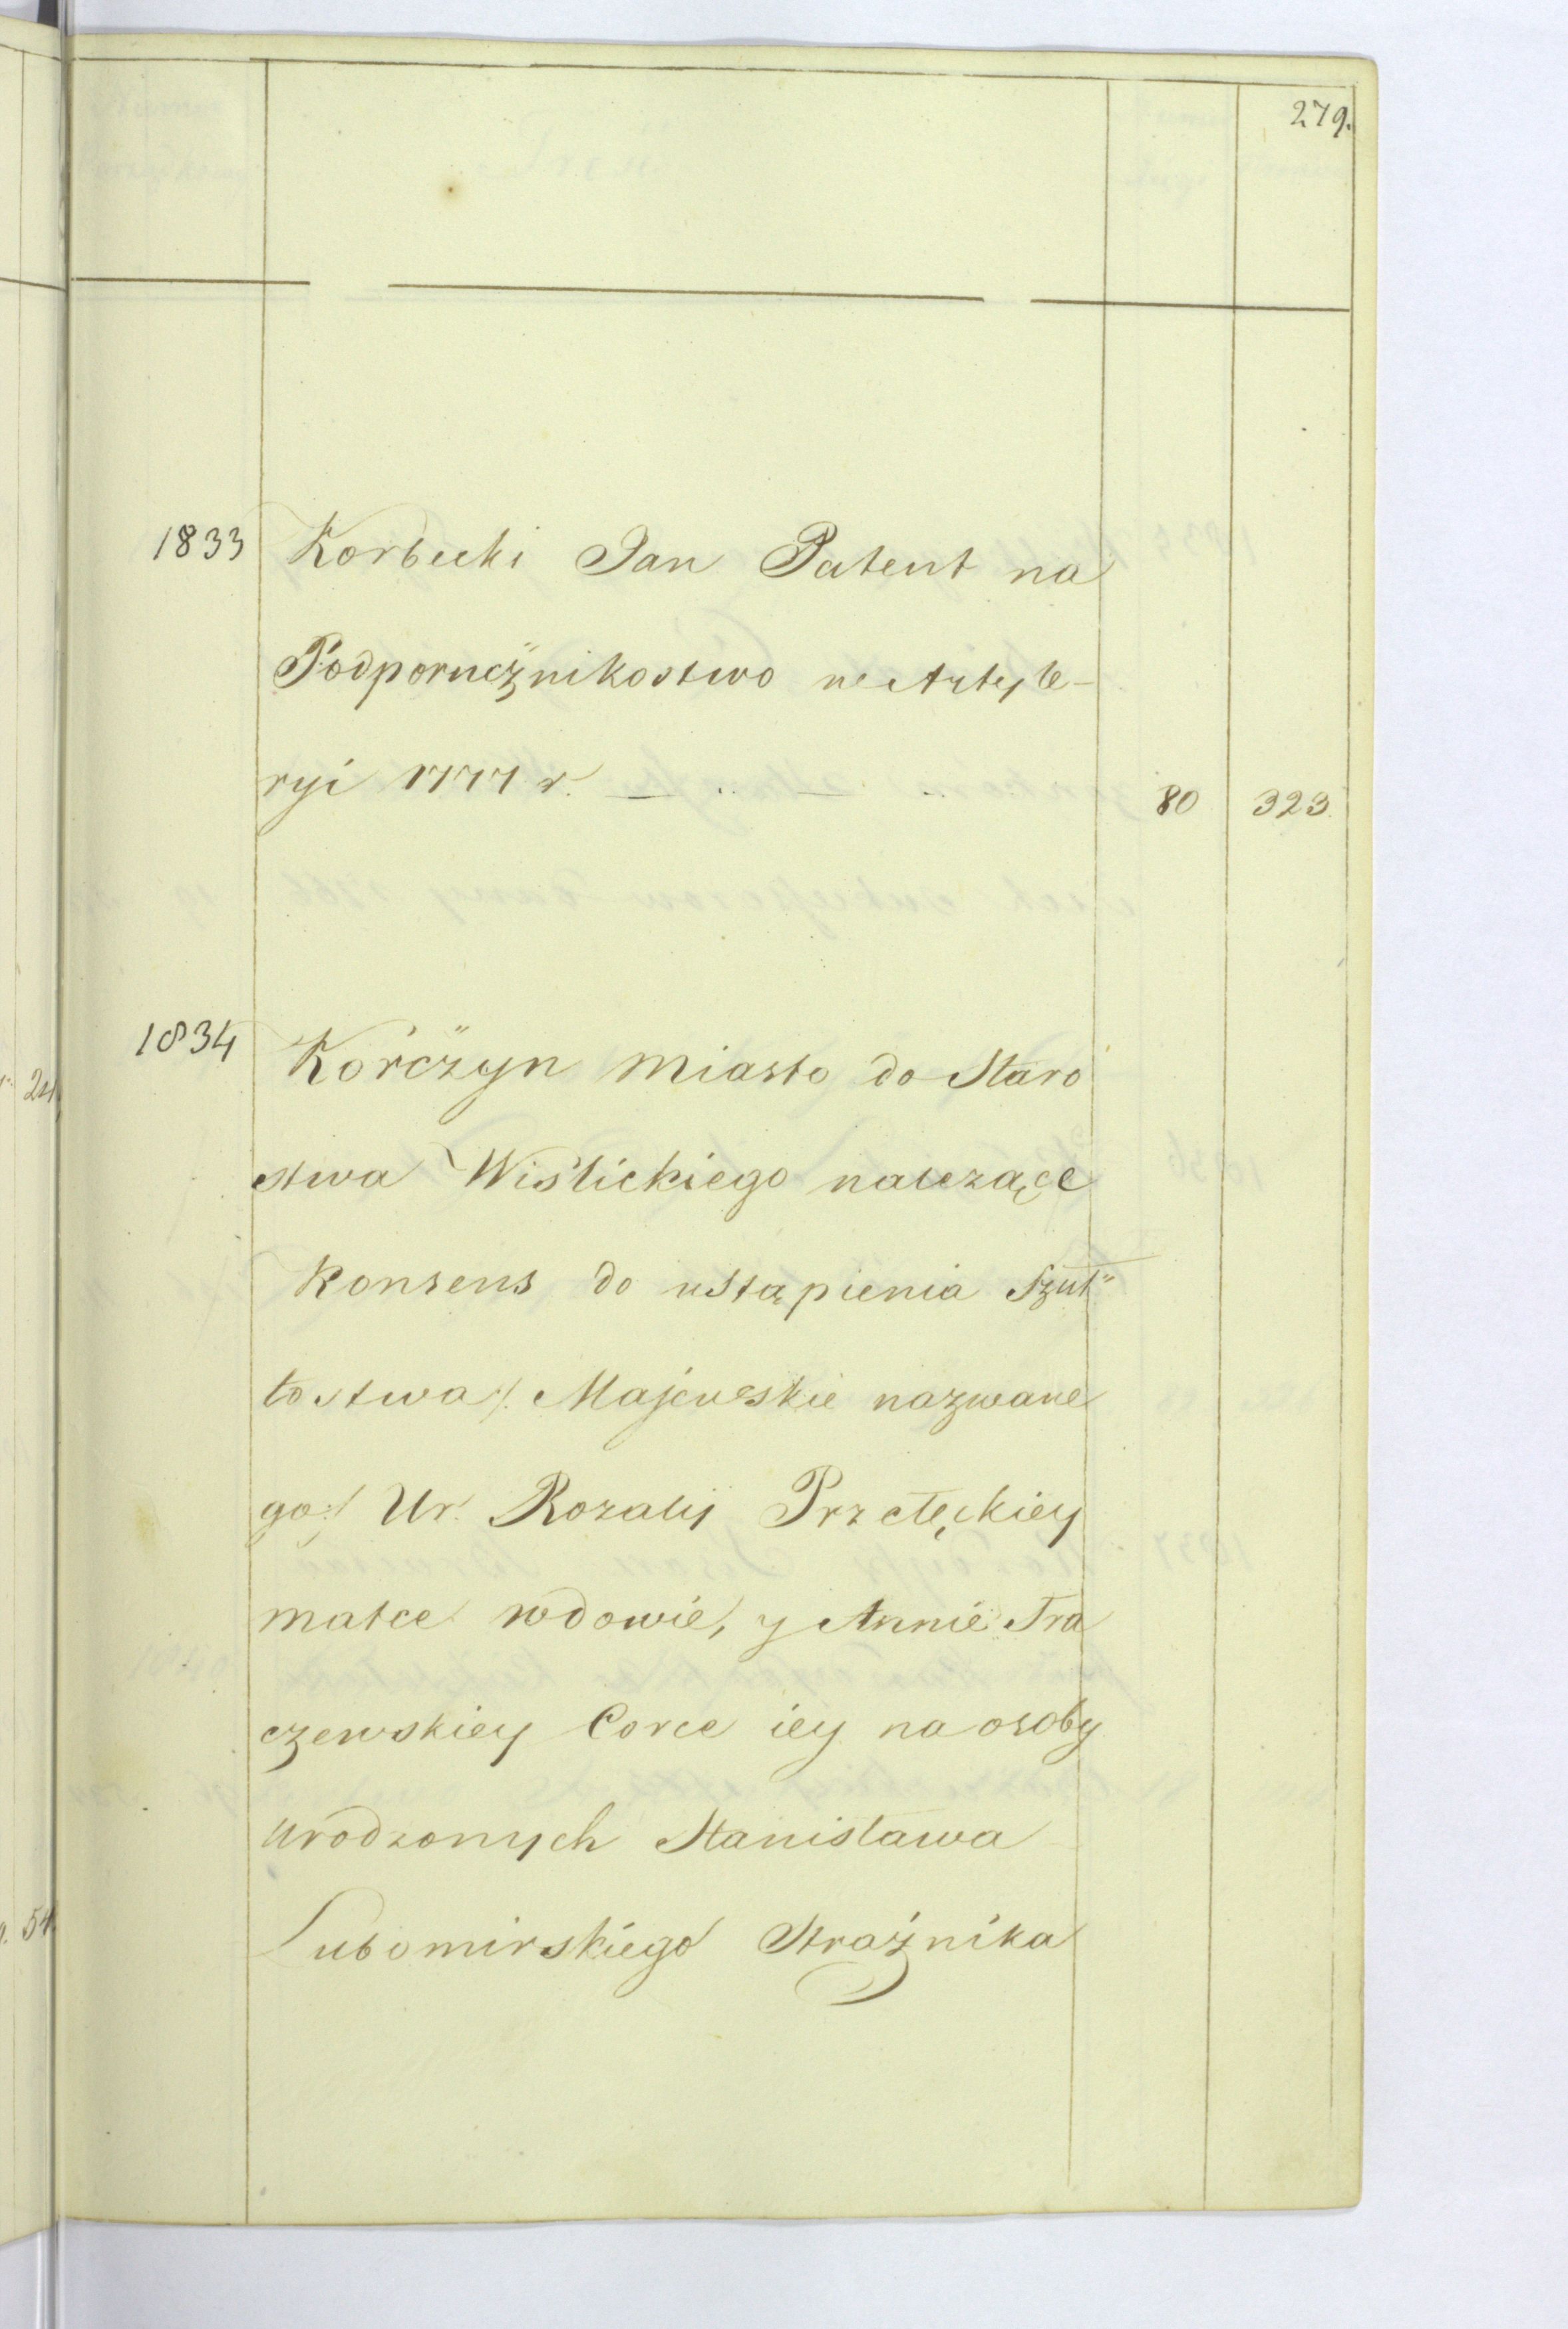 279.
1833 Korbecki Jan Patent na
Podporucznikostwo w Artyle-
ryi 1777 r. — .. — .. 80 323
1834 Korczyn miasto do Staro
stwa Wiślickiego należące
Konsens do ustąpienia Szuł"
tostwa /: Majewskie nazwane
go :/ Ur. Rozalij Przełęckiey
matce wdowie, y Annie Tra
czewskiey Corce iey na osoby
urodzonych Stanisława
Lubomirskiego Strażnika